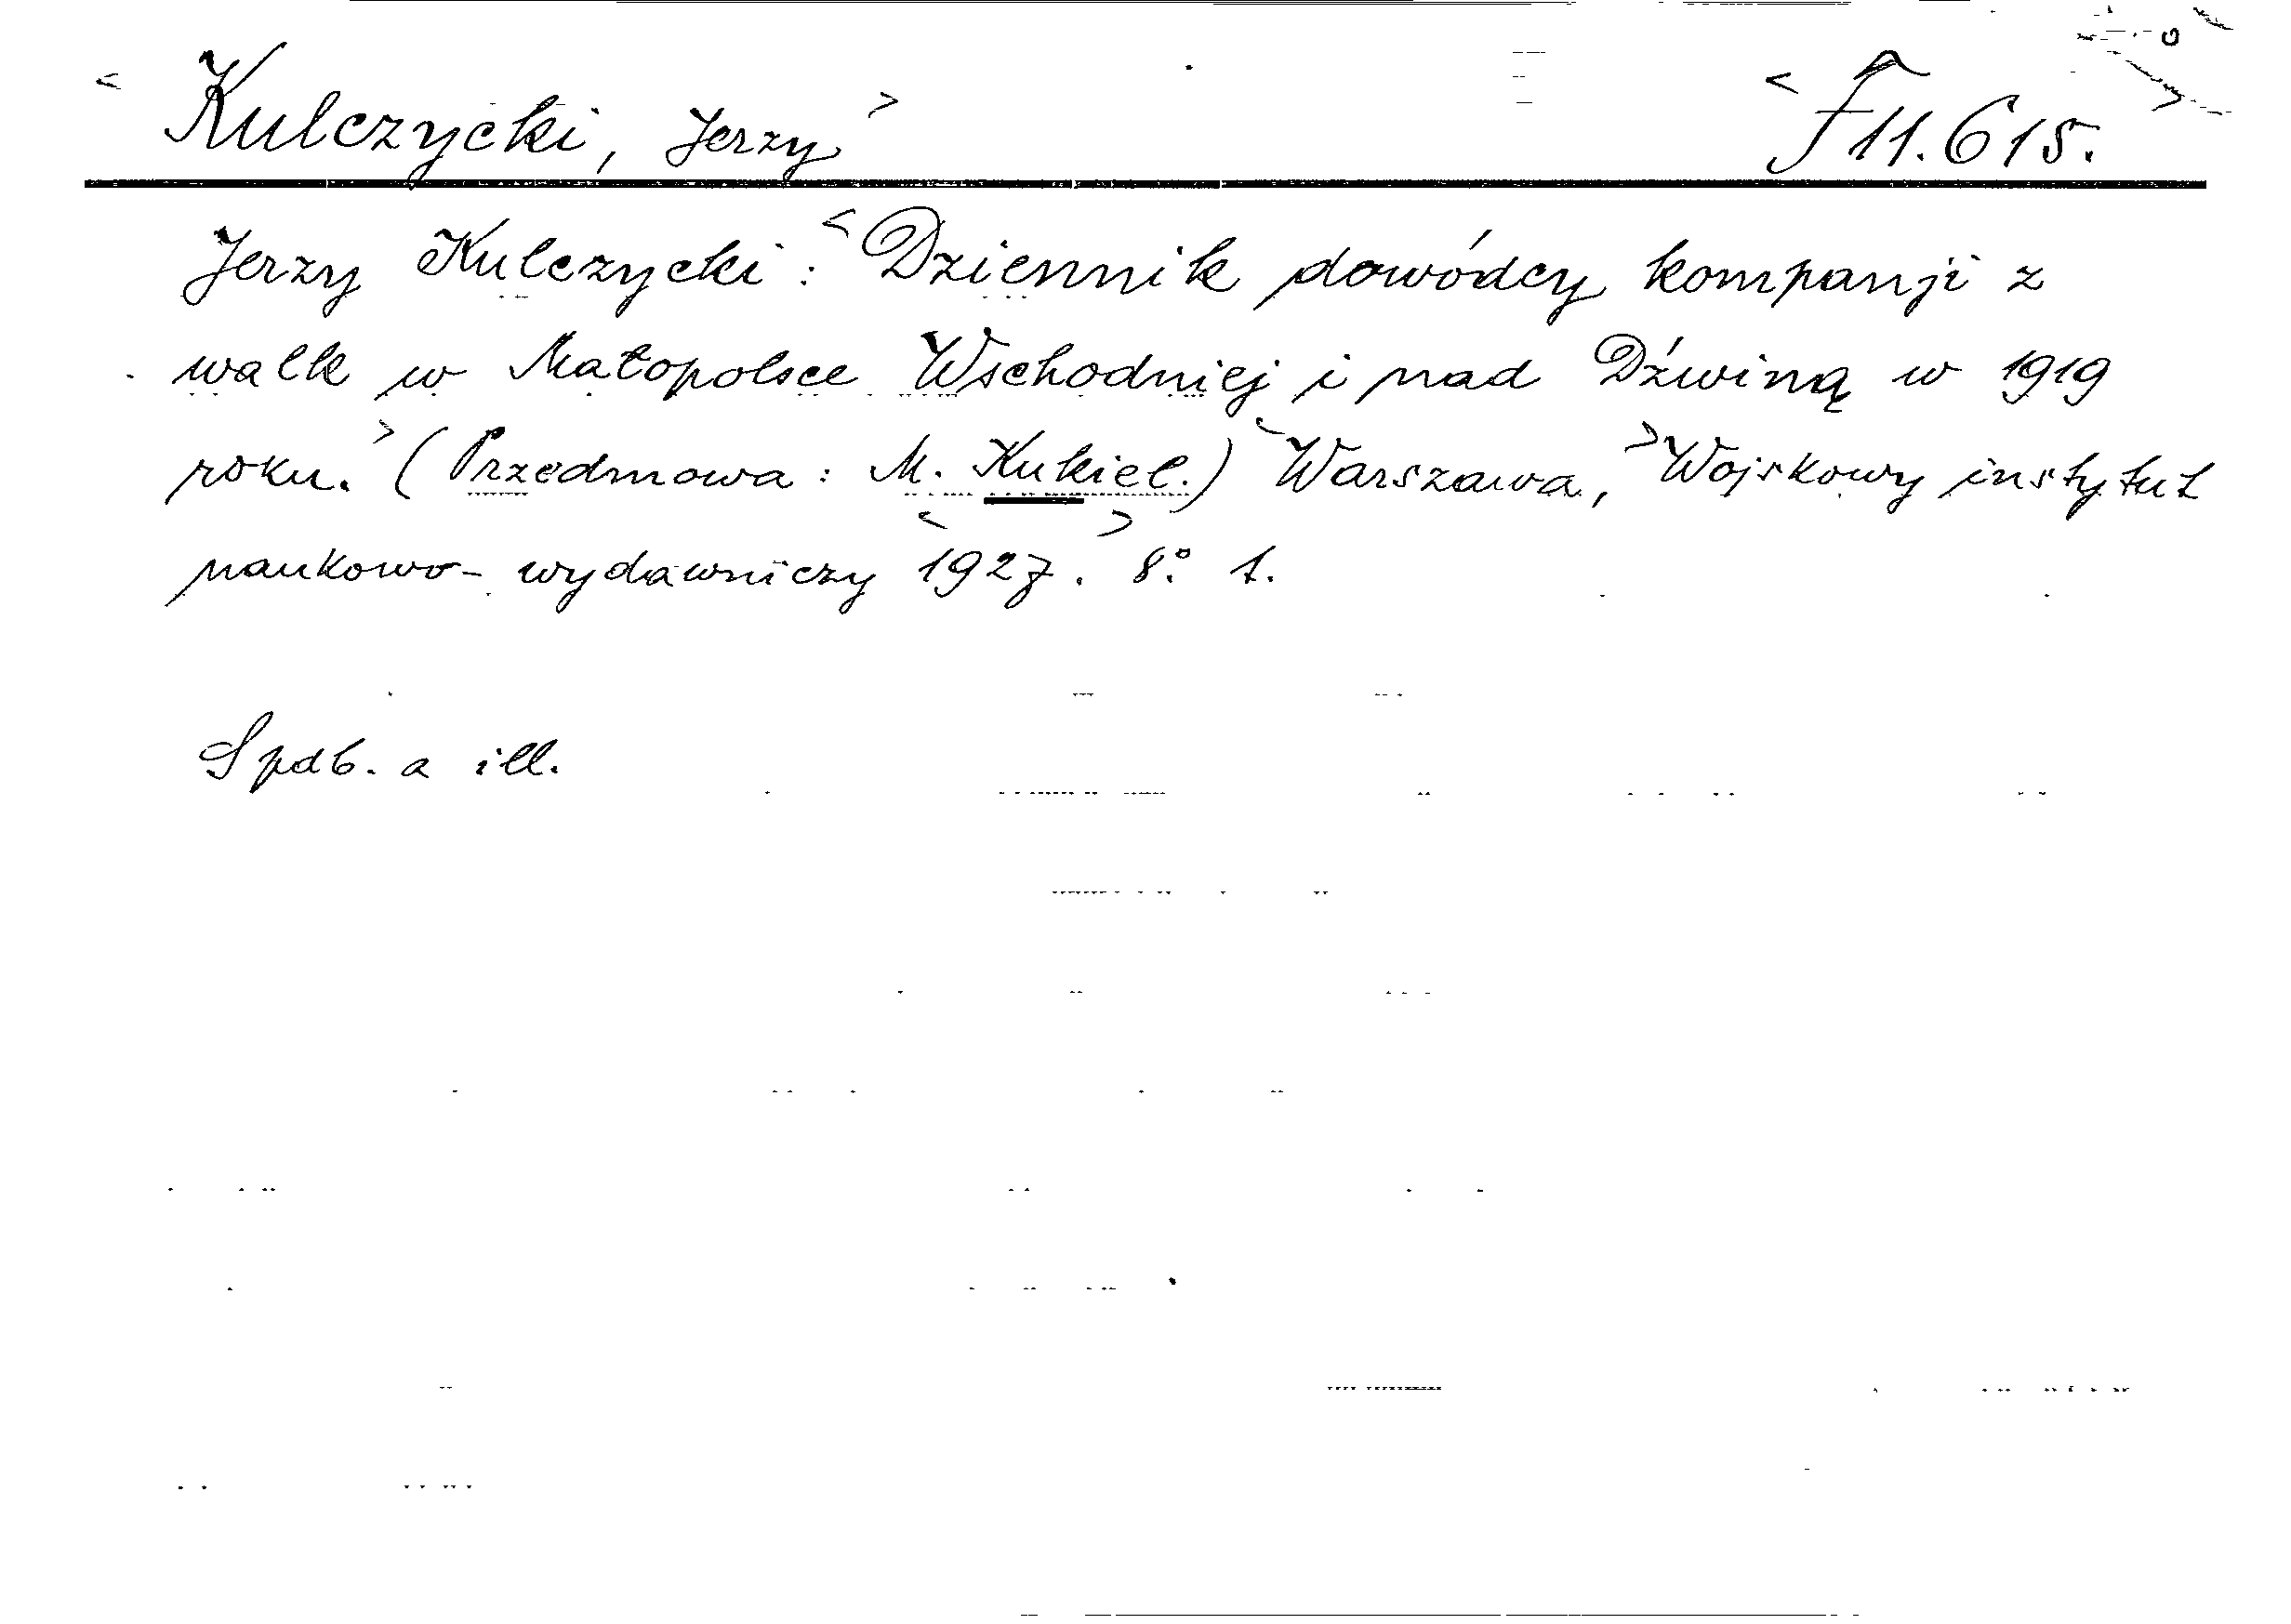 < Kulczycki, Jerzy > < F 11.615. >
Jerzy Kulczycki: < Dziennik dowódcy kompanji z
walk w Małopolsce Wschodniej i nad Dźwiną w 1919
roku. > (Przedmowa: M. Kukiel.) < Warszawa, > Wojskowy instytut
naukowo-wydawniczy < 1927. > 8° 1.
S pdb. a ill.